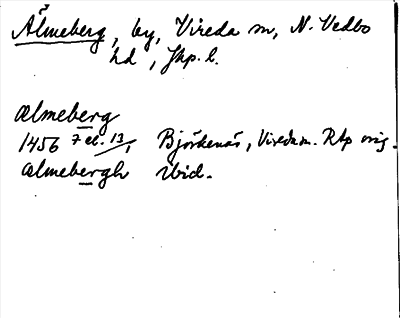 Älmeberg, by, Vireda sn, N. Vedbo
hd, Jkp. l.
Ælmeberg
1456 7 el. 13/1 Björkenäs, Vireda sn. RAp orig.
ælmebergh ibid.